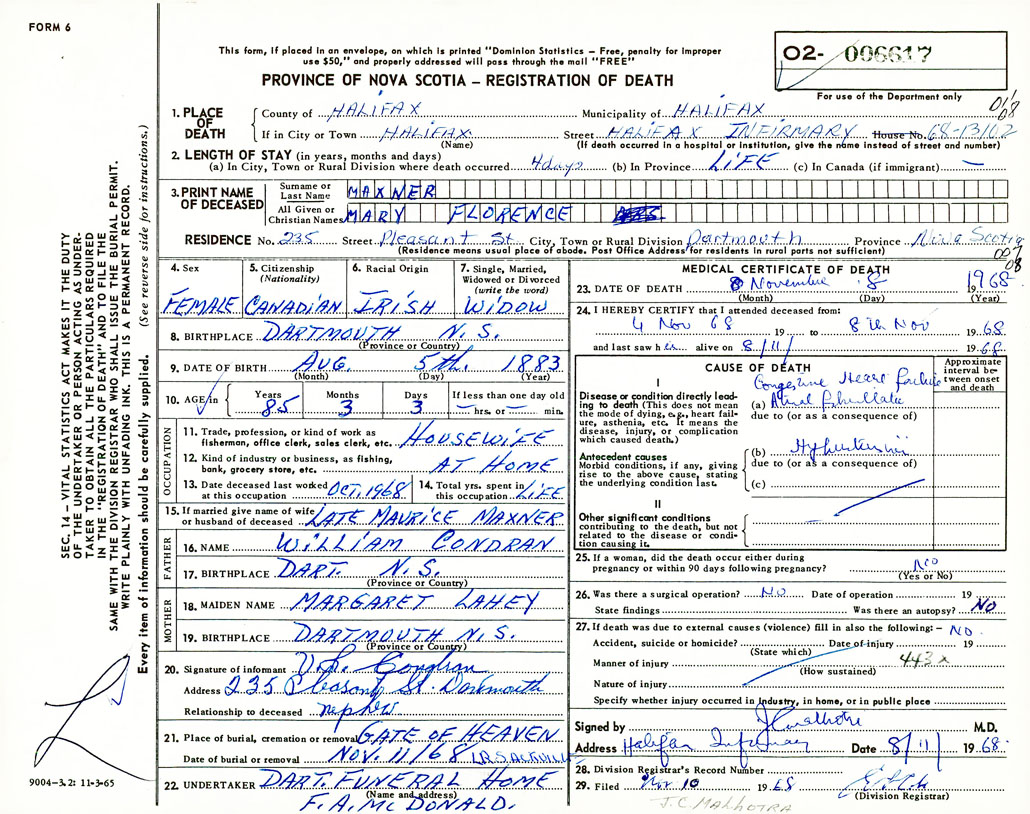 FORM 6
This form, if placed in an envelope, on which is printed "Dominion Statistics – Free, penalty for improper
use $50," and properly addressed will pass through the mail "FREE"
PROVINCE OF NOVA SCOTIA – REGISTRATION OF DEATH
O2- 006617
For use of the Department only
1. PLACE OF DEATH
County of HALIFAX Municipality of HALIFAX
If in City or Town HALIFAX Street HALIFAX INFIRMARY House No. 68-13102
(Name) (If death occurred in a hospital or institution, give the name instead of street and number)
2. LENGTH OF STAY (in years, months and days)
(a) In City, Town or Rural Division where death occurred 4 days (b) In Province LIFE (c) In Canada (if immigrant) —
3. PRINT NAME OF DECEASED
Surname or Last Name MAXNER
All Given or Christian Names MARY FLORENCE
RESIDENCE No. 235 Street Pleasant St City, Town or Rural Division Dartmouth Province Nova Scotia
(Residence means usual place of abode. Post Office Address for residents in rural parts not sufficient)
4. Sex
FEMALE
5. Citizenship (Nationality)
CANADIAN
6. Racial Origin
IRISH
7. Single, Married, Widowed or Divorced (write the word)
WIDOW
8. BIRTHPLACE DARTMOUTH N.S.
(Province or Country)
9. DATE OF BIRTH AUG. 5th. 1883
(Month) (Day) (Year)
10. AGE in Years Months Days If less than one day old
85 3 3 — hrs. or — min.
OCCUPATION
11. Trade, profession, or kind of work as fisherman, office clerk, sales clerk, etc. HOUSEWIFE
12. Kind of industry or business, as fishing, bank, grocery store, etc. AT HOME
13. Date deceased last worked at this occupation OCT. 1968
14. Total yrs. spent in this occupation LIFE
15. If married give name of wife or husband of deceased LATE MAURICE MAXNER
FATHER
16. NAME WILLIAM CONDRAN
17. BIRTHPLACE DART. N.S.
(Province or Country)
MOTHER
18. MAIDEN NAME MARGARET LAHEY
19. BIRTHPLACE DARTMOUTH N.S.
(Province or Country)
20. Signature of informant
Address 235 Pleasant St. Dartmouth
Relationship to deceased nephew
21. Place of burial, cremation or removal GATE OF HEAVEN
Date of burial or removal NOV. 11/68
22. UNDERTAKER DART. FUNERAL HOME
(Name and address)
F. A. McDONALD.
MEDICAL CERTIFICATE OF DEATH
23. DATE OF DEATH November 8 1968
(Month) (Day) (Year)
24. I HEREBY CERTIFY that I attended deceased from:
4 Nov 68 19 to 8th Nov 1968
and last saw her alive on 8/11/ 1968
CAUSE OF DEATH
Approximate interval between onset and death
I
Disease or condition directly leading to death (This does not mean the mode of dying, e.g., heart failure, asthenia, etc. It means the disease, injury, or complication which caused death.)
Congestive Heart failure
(a)
due to (or as a consequence of)
Antecedent causes
Morbid conditions, if any, giving rise to the above cause, stating the underlying condition last.
(b) Hypertension
due to (or as a consequence of)
(c)
II
Other significant conditions
contributing to the death, but not related to the disease or condition causing it.
25. If a woman, did the death occur either during pregnancy or within 90 days following pregnancy? No
(Yes or No)
26. Was there a surgical operation? No Date of operation 19
State findings Was there an autopsy? NO
27. If death was due to external causes (violence) fill in also the following: – NO.
Accident, suicide or homicide? Date of injury 19
(State which)
Manner of injury 443x
(How sustained)
Nature of injury
Specify whether injury occurred in industry, in home, or in public place
Signed by M.D.
Address Halifax Infirmary Date 8/11 1968
28. Division Registrar's Record Number
29. Filed Nov 10 1968
(Division Registrar)
J.C. MALHOTRA
SEC. 14 – VITAL STATISTICS ACT MAKES IT THE DUTY
OF THE UNDERTAKER OR PERSON ACTING AS UNDER-
TAKER TO OBTAIN ALL THE PARTICULARS REQUIRED
IN THE "REGISTRATION OF DEATH" AND TO FILE THE
SAME WITH THE DIVISION REGISTRAR WHO SHALL ISSUE THE BURIAL PERMIT.
WRITE PLAINLY WITH UNFADING INK. THIS IS A PERMANENT RECORD.
Every item of information should be carefully supplied. (See reverse side for instructions.)
9004-3.2: 11-3-65